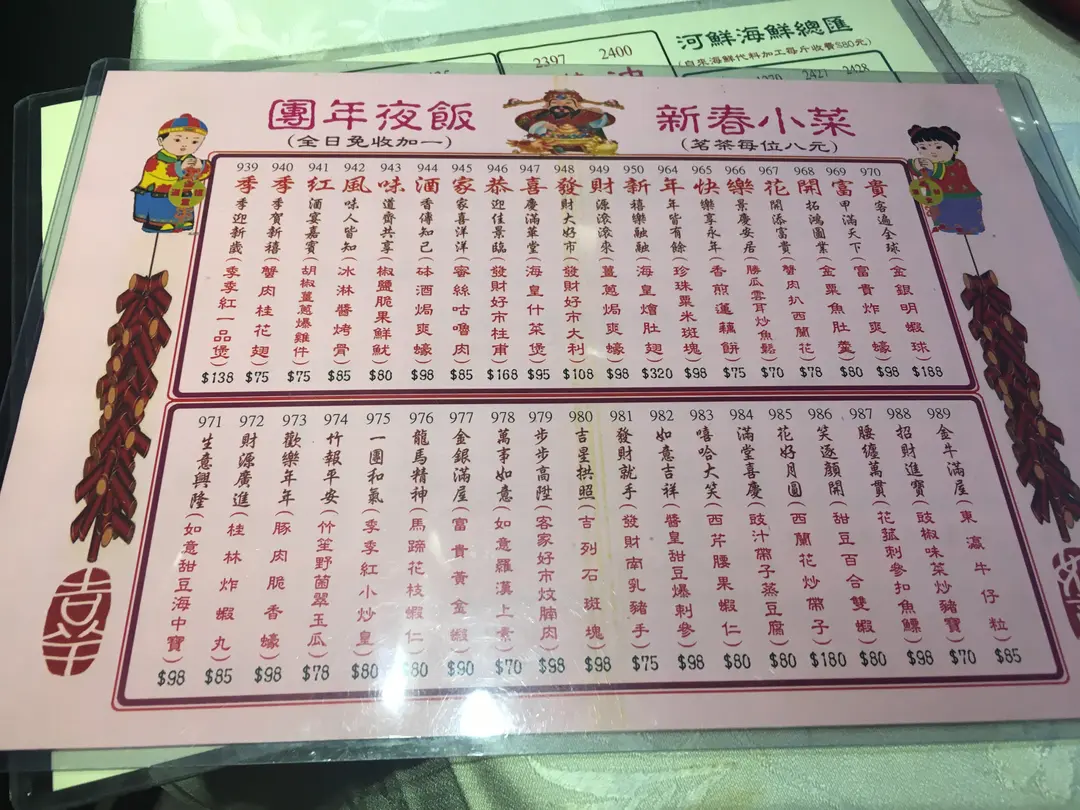 河鮮海鮮總匯
(自來海鮮代料加工每斤收費$80元)
2397 2400
2427 2428
團年夜飯
(全日免收加一)
新春小菜
(茗茶每位八元)
939 季季迎新歲(季季紅一品煲) $138
940 季季賀新禧(蟹肉桂花翅) $75
941 紅酒宴嘉賓(胡椒薑蔥爆雞件) $75
942 風味人皆知(冰淋醬烤骨) $85
943 味道齊共享(椒鹽脆果鮮魷) $80
944 酒香傳知己(砵酒焗爽蠔) $98
945 家家喜洋洋(蜜絲咕嚕肉) $85
946 恭迎佳景臨(發財好市柱甫) $168
947 喜慶滿華堂(海皇什菜煲) $95
948 發財大好市(發財好市大利) $108
949 財源滾滾來(薑蔥焗爽蠔) $98
950 新禧樂融融(海皇燴肚翅) $320
964 年年皆有餘(珍珠粟米斑塊) $98
965 快樂享永年(香煎蓮藕餅) $75
966 樂景慶安居(勝瓜雲耳炒魚鬆) $70
967 花開添富貴(蟹肉扒西蘭花) $78
968 開拓鴻圖業(金粟魚肚羹) $80
969 富甲滿天下(富貴炸爽蠔) $98
970 貴客遍全球(金銀明蝦球) $188
971 生意興隆(如意甜豆海中寶) $98
972 財源廣進(桂林炸蝦丸) $85
973 歡樂年年(豚肉脆香蠔) $98
974 竹報平安(竹笙野菌翠玉瓜) $78
975 一團和氣(季季紅小炒皇) $80
976 龍馬精神(馬蹄花枝蝦仁) $80
977 金銀滿屋(富貴黃金蝦) $90
978 萬事如意(如意羅漢上素) $70
979 步步高陞(客家好市炆腩肉) $98
980 吉星拱照(吉列石斑塊) $98
981 發財就手(發財南乳豬手) $75
982 如意吉祥(醬皇甜豆爆刺參) $98
983 嘻哈大笑(西芹腰果蝦仁) $80
984 滿堂喜慶(豉汁帶子蒸豆腐) $80
985 花好月圓(西蘭花炒帶子) $180
986 笑逐顏開(甜豆百合雙蝦) $80
987 腰纏萬貫(花菰刺參扣魚鰾) $98
988 招財進寶(豉椒味菜炒豬寶) $70
989 金牛滿屋(東瀛牛仔粒) $85